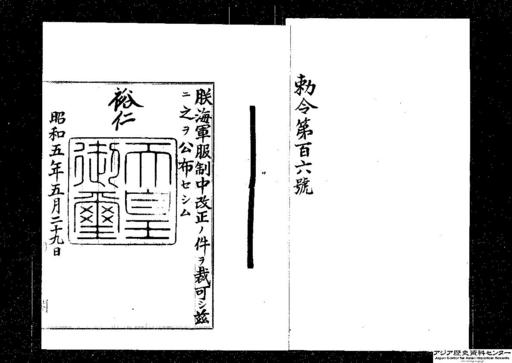 勅令第百六號
朕海軍服制中改正ノ件ヲ裁可シ茲
ニ之ヲ公布セシム
裕仁
天皇
御璽
昭和五年五月二十九日
アジア歴史資料センター
Japan Center for Asian Historical Records